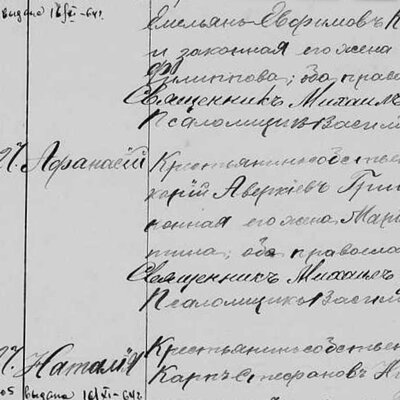 выдана 16/XI-64г. Емельянъ Евфимовъ К
и законная его жена
Филиппова; оба правос
Священникъ Михаилъ
Псаломщикъ Василій
27. Афанасій Крестьянинъ собствен
харій Аверкіевъ Гри
конная его жена Мар
тина; оба православ
Священникъ Михаилъ
Псаломщикъ Василій
27. Наталія Крестьянинъ собствен
Карпъ Стефановъ
05 выдана 16/XI-64г.